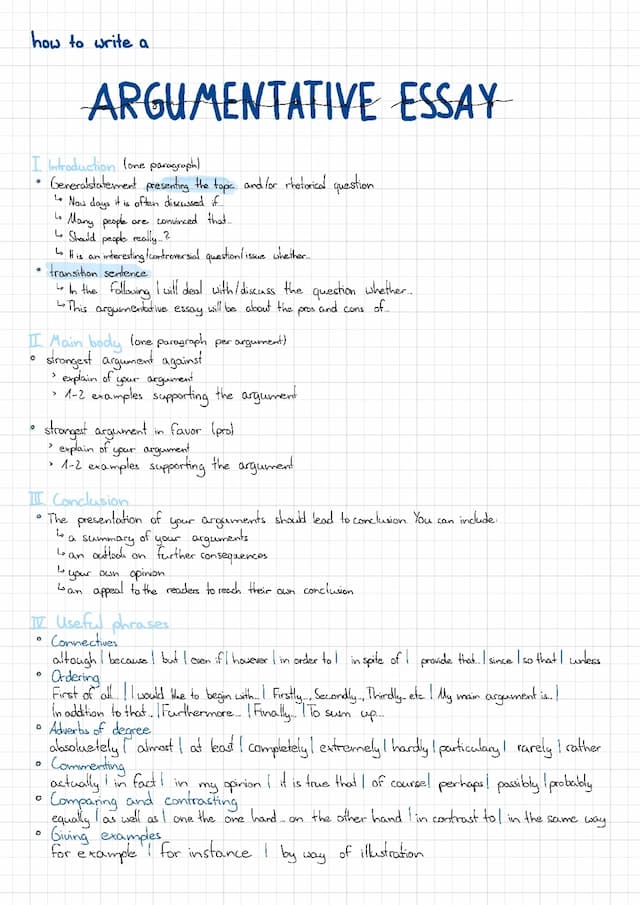 how to write a
ARGUMENTATIVE ESSAY
I. Introduction (one paragraph)
• Generalstatement presenting the topic and/or rhetorical question
↳ Now days it is often discussed if...
↳ Many people are convinced that...
↳ Should people really...?
↳ It is an interesting/controversial question/issue whether...
• transition sentence
↳ In the following I will deal with/discuss the question whether...
↳ This argumentative essay will be about the pros and cons of...
II. Main body (one paragraph per argument)
• strongest argument against
> explain of your argument
> 1-2 examples supporting the argument
• strongest argument in favor (pro)
> explain of your argument
> 1-2 examples supporting the argument
III. Conclusion
• The presentation of your arguments should lead to conclusion. You can include:
↳ a summary of your arguments
↳ an outlook on further consequences
↳ your own opinion
↳ an appeal to the readers to reach their own conclusion
IV. Useful phrases
• Connectives
altough | because | but | even if | however | in order to | in spite of | provide that... | since | so that | unless
• Ordering
First of all... | I would like to begin with... | Firstly..., Secondly..., Thirdly... etc. | My main argument is... |
In addition to that... | Furthermore... | Finally... | To sum up...
• Adverbs of degree
absoluetely | almost | at least | completely | extremely | hardly | particulary | rarely | rather
• Commenting
actually | in fact | in my opinion | it is true that | of course | perhaps | possibly | probably
• Comparing and contrasting
equally | as well as | one the one hand... on the other hand | in contrast to | in the same way
• Giving examples
for example | for instance | by way of illustration